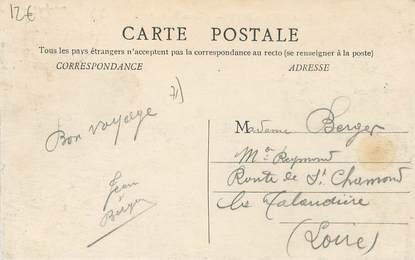 12€
CARTE POSTALE
Tous les pays étrangers n'acceptent pas la correspondance au recto (se renseigner à la poste)
CORRESPONDANCE
ADRESSE
Bon voyage
Jean
Berger
Madame Berger
Mon Reymond
Route de St Chamond
La Talaudière
(Loire)